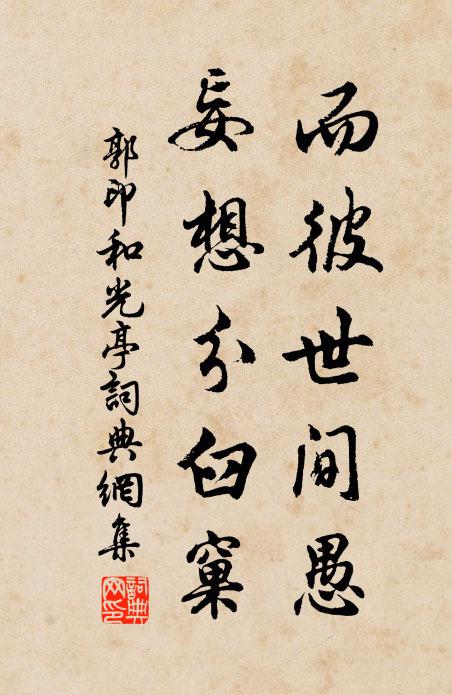 而彼世間愚
妄想分臼窠
郭印和光亭詞典網集
詞典